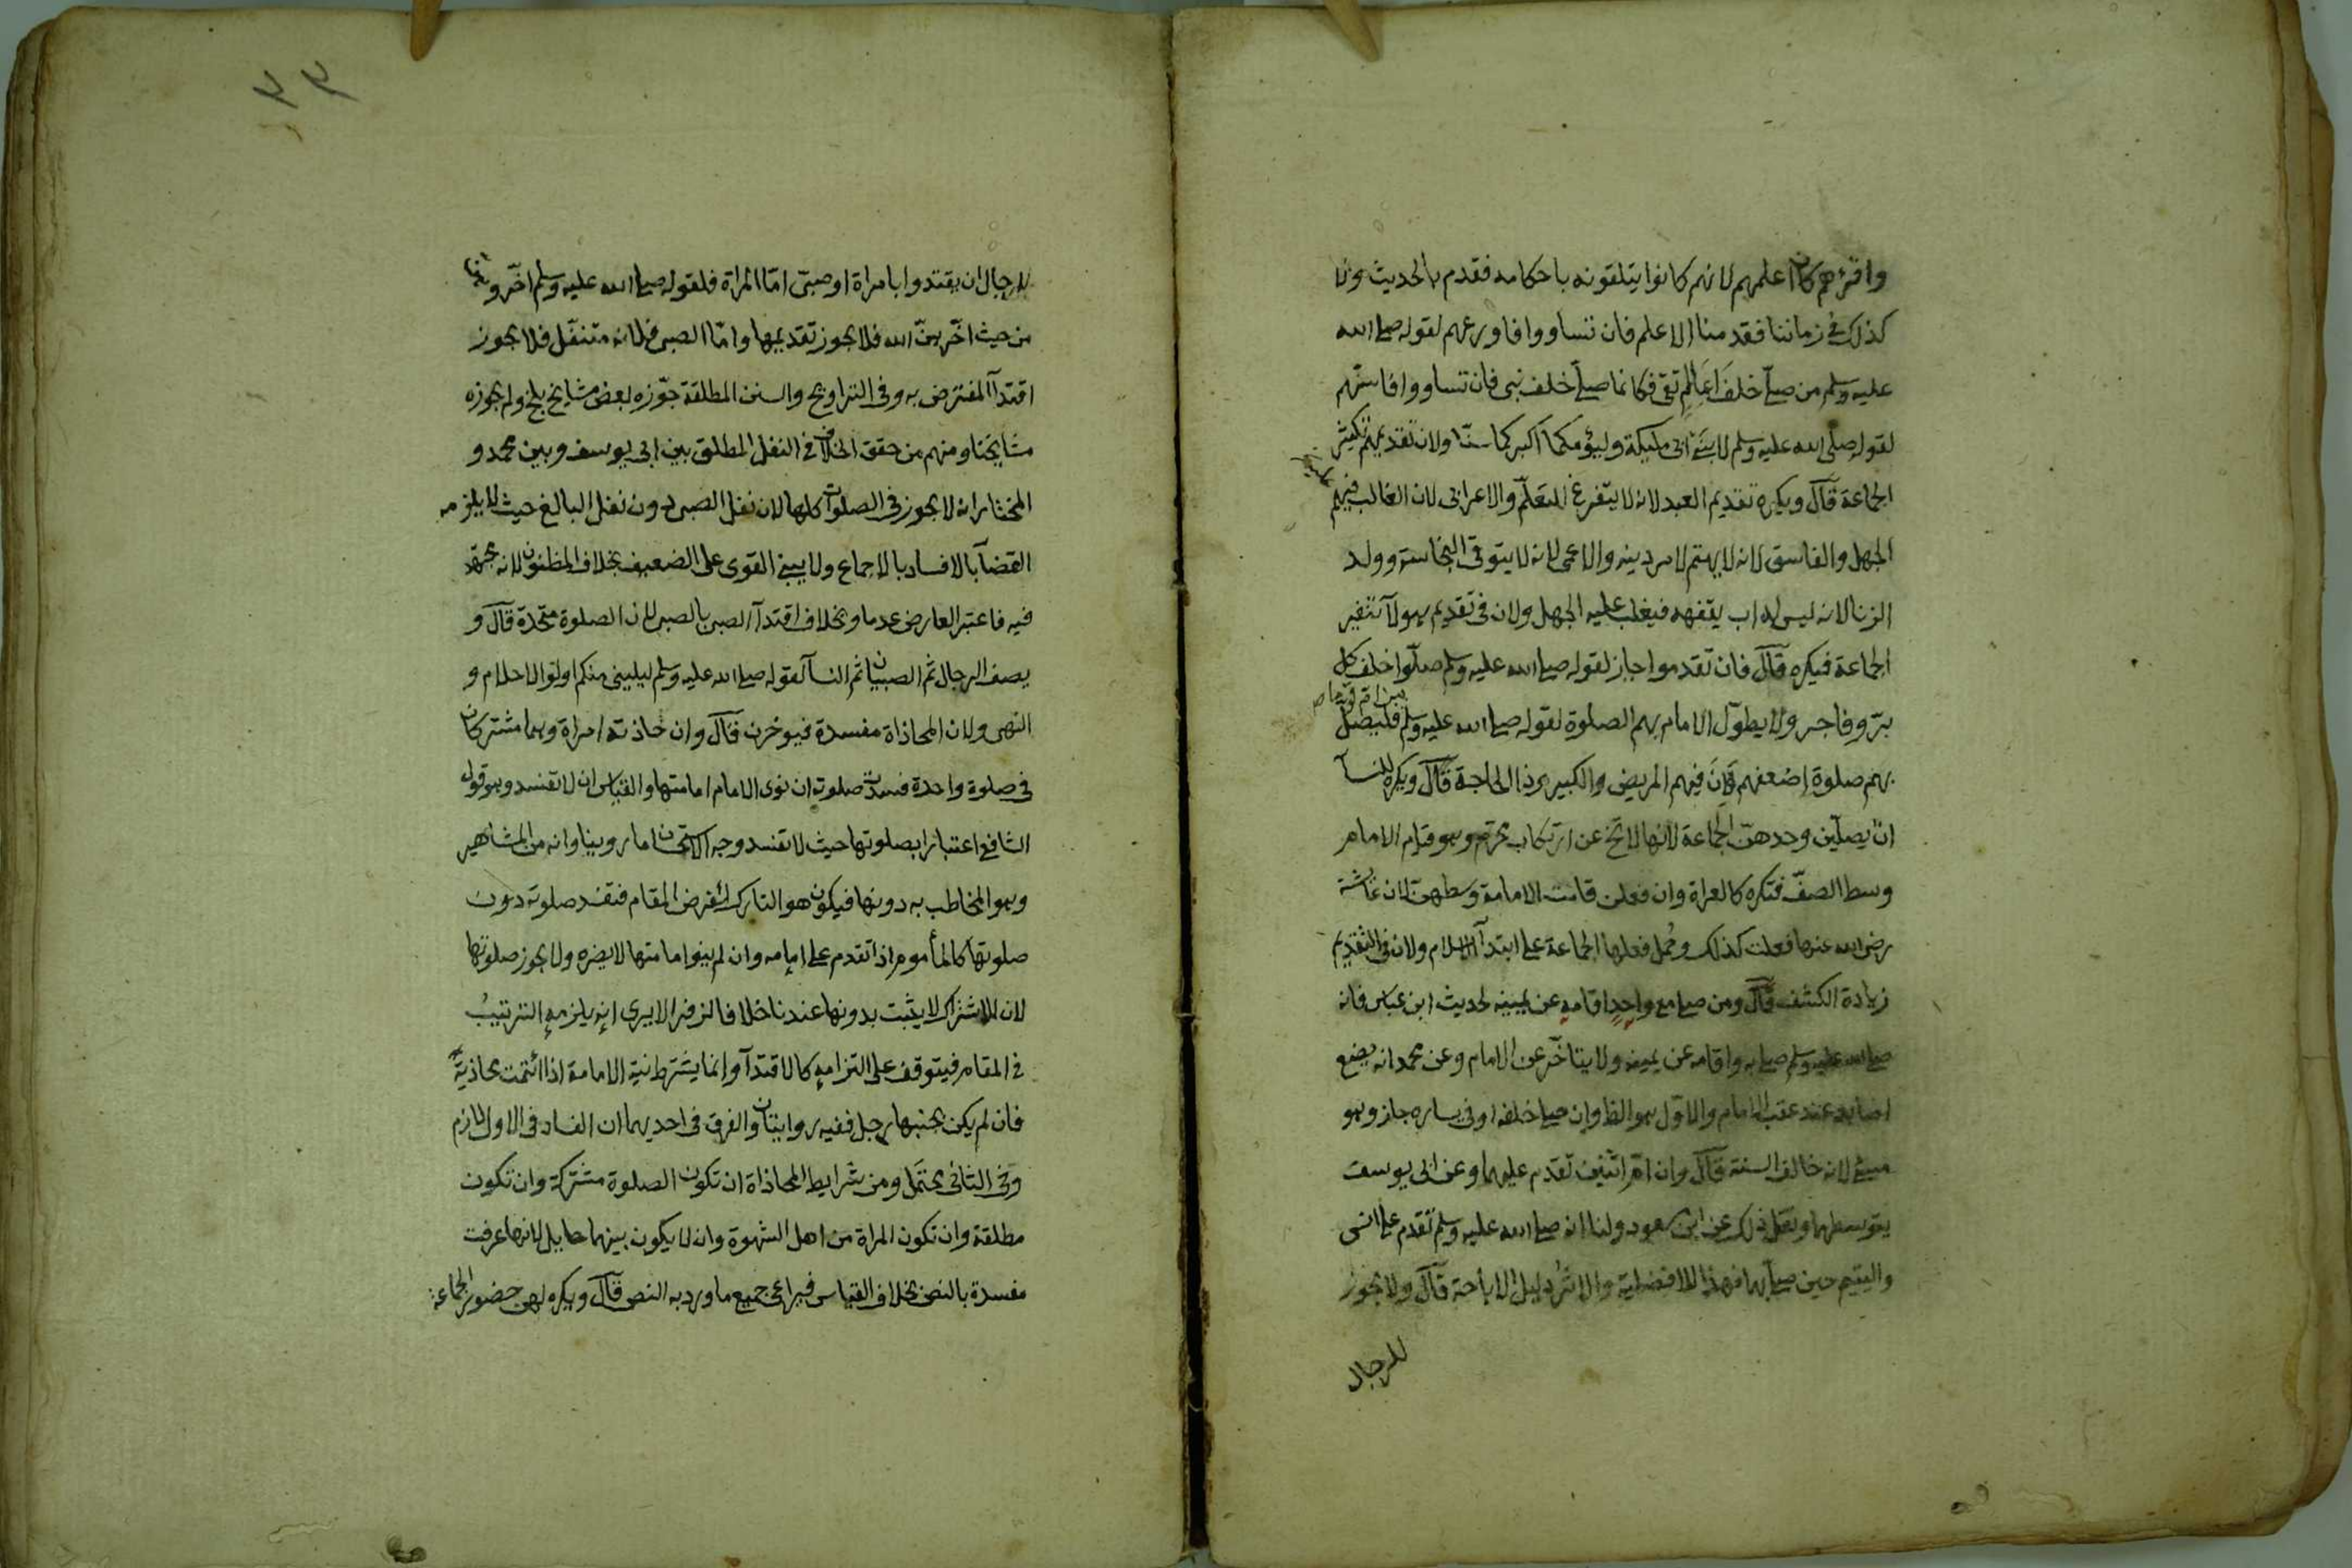 واقرؤهم كان اعلمهم لانهم كانوا يتلقونه باحكامه فقدم بالحديث ولا
كذلك في زماننا فقدمنا الاعلم فان تساووا فاورعهم لقوله صلى الله
عليه وسلم من صلى خلف عالم تقي فكانما صلى خلف نبي فان تساووا فاسنهم
لقوله صلى الله عليه وسلم لابني ابي مليكة وليؤمكما اكبركما سنا ولان تقديمهم تكثير
الجماعة قال ويكره تقديم العبد لانه لا يتفرغ للتعلم والاعرابي لان الغالب فيهم
الجهل والفاسق لانه لا يهتم لامر دينه والاعمى لانه لا يتوقى النجاسة وولد
الزنا لانه ليس له اب يفقهه فيغلب عليه الجهل ولان في تقديم هولآ تنفير
الجماعة فيكره قال فان تقدموا جاز لقوله صلى الله عليه وسلم صلوا خلف كل
بر وفاجر ولا يطول الامام بهم الصلوة لقوله صلى الله عليه وسلم من ام قوما فليصل
بهم صلوة اضعفهم فان فيهم المريض والكبير وذا الحاجة قال ويكره للنسآ
ان يصلين وحدهن الجماعة لانها لا تخ عن ارتكاب محرم وهو قيام الامام
وسط الصف فتكره كالعراة وان فعلن قامت الامامة وسطهن لان عائشة
رضى الله عنها فعلت كذلك وحمل فعلها الجماعة على ابتدآ الاسلام ولان في التقديم
زيادة الكشف قال ومن صلى مع واحد اقامه عن يمينه لحديث ابن عباس فانه
صلى الله عليه وسلم صلى به واقامه عن يمينه ولا يتاخر عن الامام وعن محمد انه يضع
اصابعه عند عقب الامام والاول هو الظ وان صلى خلفه او في يساره جاز وهو
مسئ لانه خالف السنة قال وان ام اثنين تقدم عليهما وعن ابي يوسف
يتوسطهما ونقل ذلك عن ابن مسعود ولنا انه صلى الله عليه وسلم تقدم على انس
واليتيم حين صلى بهما فهذا للافضلية والاثر دليل الاباحة قال ولا يجوز
للرجال
٣٣
للرجال ان يقتدوا بامراة او صبي اما المراة فلقوله صلى الله عليه وسلم اخروهن
من حيث اخرهن الله فلا يجوز تقديمها واما الصبي فلانه متنفل فلا يجوز
اقتدآ المفترض به وفي التراويح والسنن المطلقة جوزه بعض مشايخ بلخ ولم يجوزه
مشايخنا ومنهم من حقق الخلاف في النفل المطلق بين ابي يوسف وبين محمد و
المختار انه لا يجوز في الصلوات كلها لان نفل الصبي دون نفل البالغ حيث لا يلزمه
القضآ بالافساد بالاجماع ولا يبنى القوى على الضعيف بخلاف المظنون لانه مجتهد
فيه فاعتبر العارض عدما وبخلاف اقتدآ الصبي بالصبي لان الصلوة متحدة قال و
يصف الرجال ثم الصبيان ثم النسآ لقوله صلى الله عليه وسلم ليليني منكم اولوا الاحلام و
النهى ولان المحاذاة مفسدة فيوخرن قال وان حاذته امراة وهما مشتركان
في صلوة واحدة فسدت صلوته ان نوى الامام امامتها والقياس ان لا تفسد وهو قول
الشافعي اعتبارا بصلوتها حيث لا تفسد وجه الاستحسان ما روينا وانه من المشاهير
وهو المخاطب به دونها فيكون هو التارك لفرض المقام فتفسد صلوته دون
صلوتها كالمأموم اذا تقدم على امامه وان لم ينو امامتها لا يضره ولا يجوز صلوتها
لان الاشتراك لا يثبت بدونها عندنا خلافا لزفر الا يرى انه يلزمه الترتيب
في المقام فيتوقف على التزامه كالاقتدآ وانما يشترط نية الامامة اذا ائتمت محاذية
فان لم يكن بجنبها رجل ففيه روايتان والفرق في احديهما ان الفساد في الاول لازم
وفي الثاني يحتمل ومن شرايط المحاذاة ان تكون الصلوة مشتركة وان تكون
مطلقة وان تكون المراة من اهل الشهوة وان لا يكون بينهما حايل لانها عرفت
مفسدة بالنص بخلاف القياس فيراعى جميع ما ورد به النص قال ويكره لهن حضور الجماعة